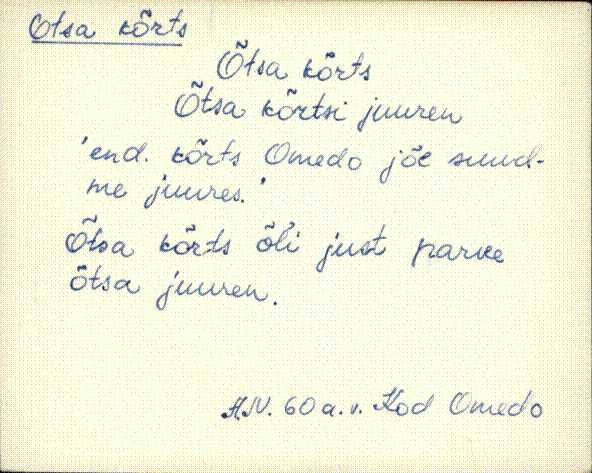 Otsa kõrts
Õtsa kõrts
Õtsa kõrtsi juuren
'end. kõrts Omedo jõe suud-
me juures.'
Õtsa kõrts õl'i just parve
õtsa juuren.
A.N. 60 a. v. Kod Omedo